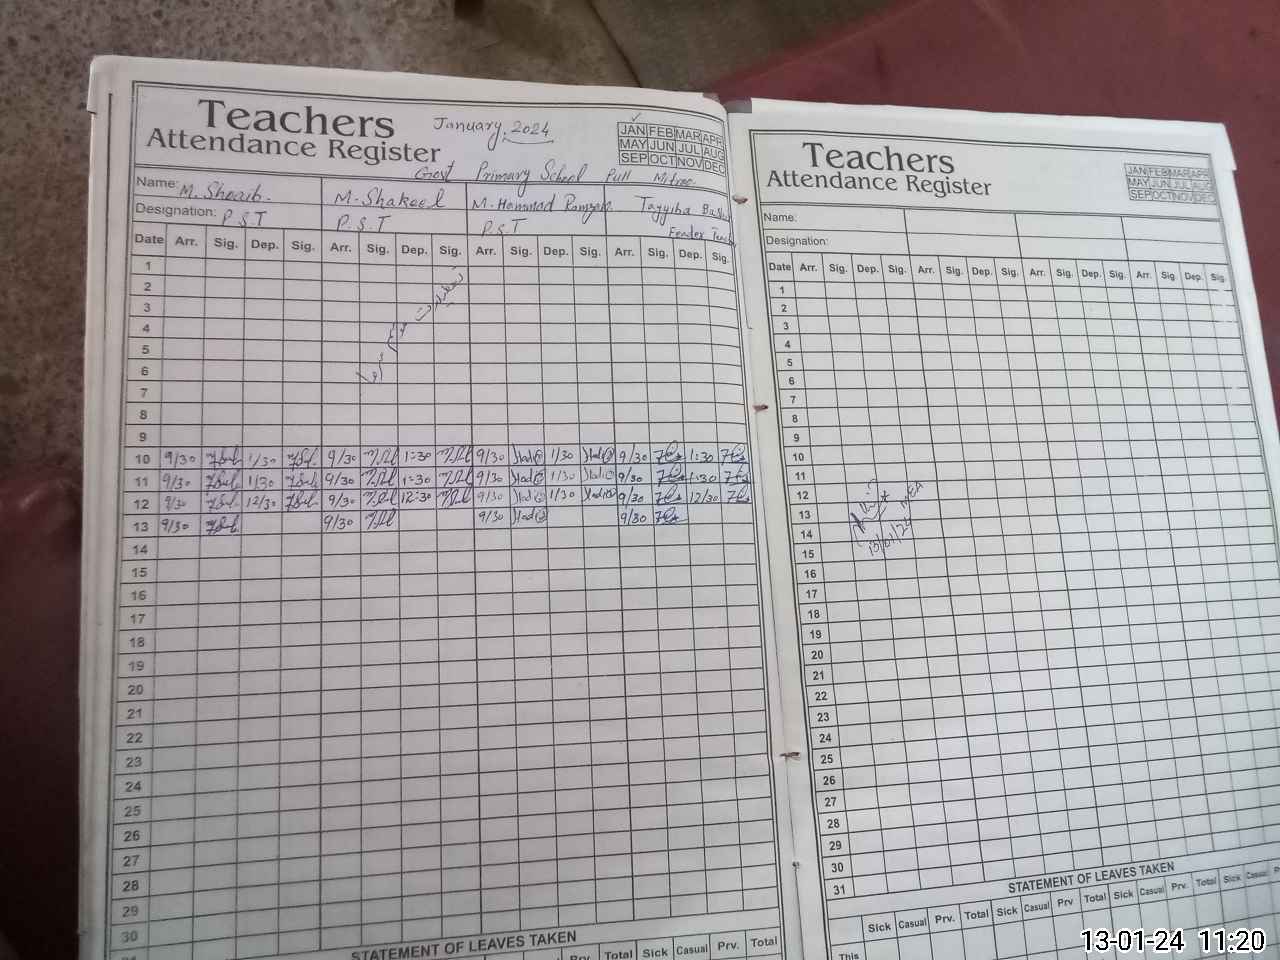 Teachers
Attendance Register
January, 2024
JAN FEB MAR APR
MAY JUN JUL AUG
SEP OCT NOV DEC
Govt Primary School Pull
Name: M. Shoaib. M. Shakeel M. Hammad Ramzan Tayyiba
Designation: P.S.T P.S.T P.S.T
Date Arr. Sig. Dep. Sig. Arr. Sig. Dep. Sig. Arr. Sig. Dep. Sig. Arr. Sig. Dep. Sig.
1
2
3
4
5
6
7
8
9
10 9/30 1/30 9/30 1:30 9/30 1/30 9/30 1:30
11 9/30 1/30 9/30 1:30 9/30 1/30 9/30 1:30
12 9/30 12/30 9/30 12:30 9/30 1/30 9/30 12/30
13 9/30 9/30 9/30 9/30
14
15
16
17
18
19
20
21
22
23
24
25
26
27
28
29
30
STATEMENT OF LEAVES TAKEN
Total Sick Casual Prv. Total
Teachers
Attendance Register
JAN FEB MAR APR
MAY JUN JUL AUG
SEP OCT NOV DEC
Name:
Designation:
Date Arr. Sig. Dep. Sig. Arr. Sig. Dep. Sig. Arr. Sig. Dep. Sig. Arr. Sig. Dep. Sig.
1
2
3
4
5
6
7
8
9
10
11
12
13
14
15
16
17
18
19
20
21
22
23
24
25
26
27
28
29
30
31
MEA
STATEMENT OF LEAVES TAKEN
Sick Casual Prv. Total Sick Casual Prv Total Sick Casual Prv. Total Sick Casual
This
13-01-24 11:20